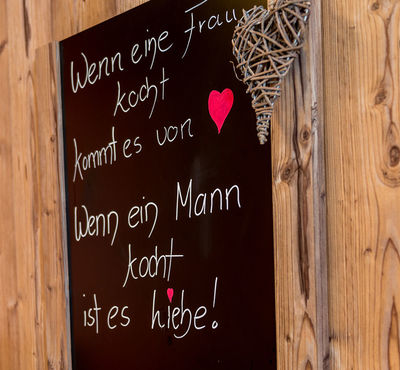 Wenn eine Frau
kocht
kommt es von
Wenn ein Mann
kocht
ist es Liebe!